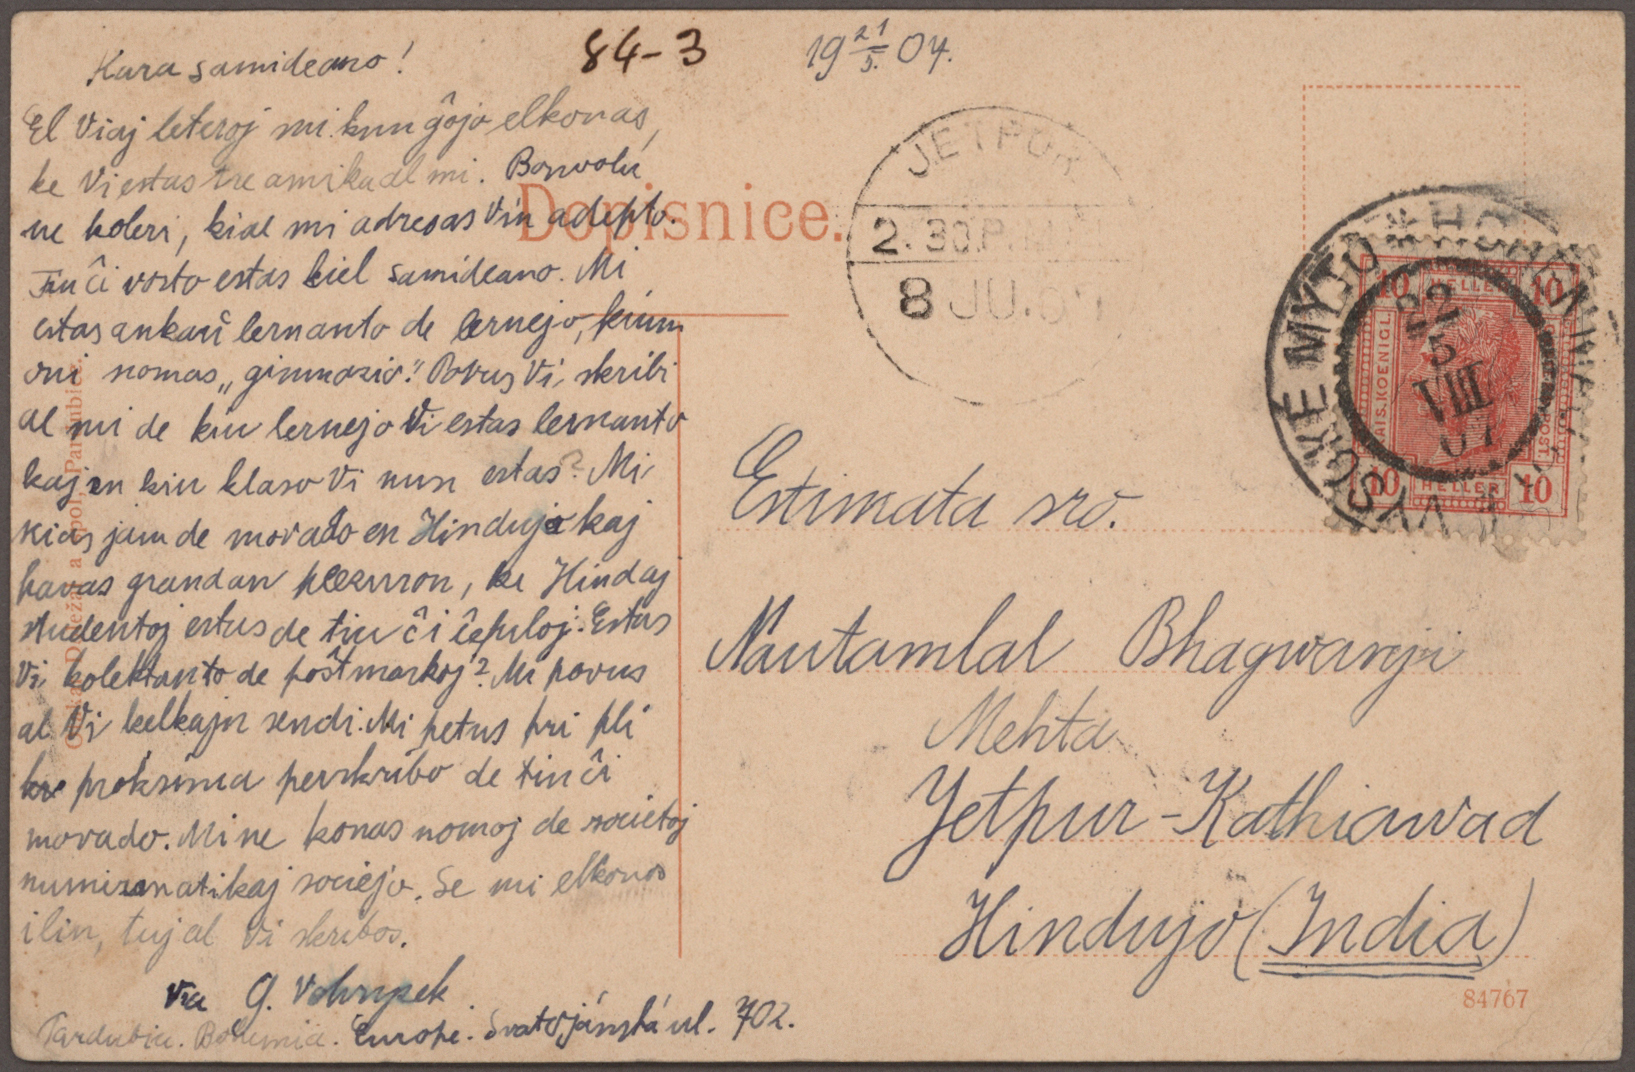 Kara samideano!
84-3
19 21/5. 07.
El Viaj leteroj mi kun ĝojo elkonas,
ke Vi estas tre amika al mi. Bonvolu
ne koleri, kial mi adresas Vin adepto.
Tiu ĉi vorto estas kiel samideano. Mi
estas ankaŭ lernanto de lernejo, kiun
oni nomas „gimnazio." Povus Vi skribi
al mi de kiu lernejo Vi estas lernanto
kaj en kiu klaso Vi nun estas? Mi
scias jam de movado en Hindujo kaj
havas grandan plezuron, ke Hindaj
studentoj estas de tiu ĉi ĉefuloj. Estas
Vi kolektanto de poŝtmarkoj? Mi povus
al Vi kelkajn sendi. Mi petus pri pli
proksima perskribo de tiu ĉi
movado. Mi ne konas nomoj de societoj
numizmatikaj sociejo. Se mi elkonos
ilin, tuj al Vi skribos.
Via G. Vohryzek
Pardubice. Bohemia. Europe. Svatojánská ul. 702.
Dopisnice.
JETPUR
2.30.P.M
8 JU.07
VYSOKÉ MYTO * HOHENMAUTH *
22
5
VIII
07
10 HELLER 10
KAIS.KOENIGL
POST
10 HELLER 10
Estimata sro.
Nautamlal Bhagwanji
Mehta
Jetpur-Kathiawad
Hindujo (India)
84767
a spol., Pardubice.